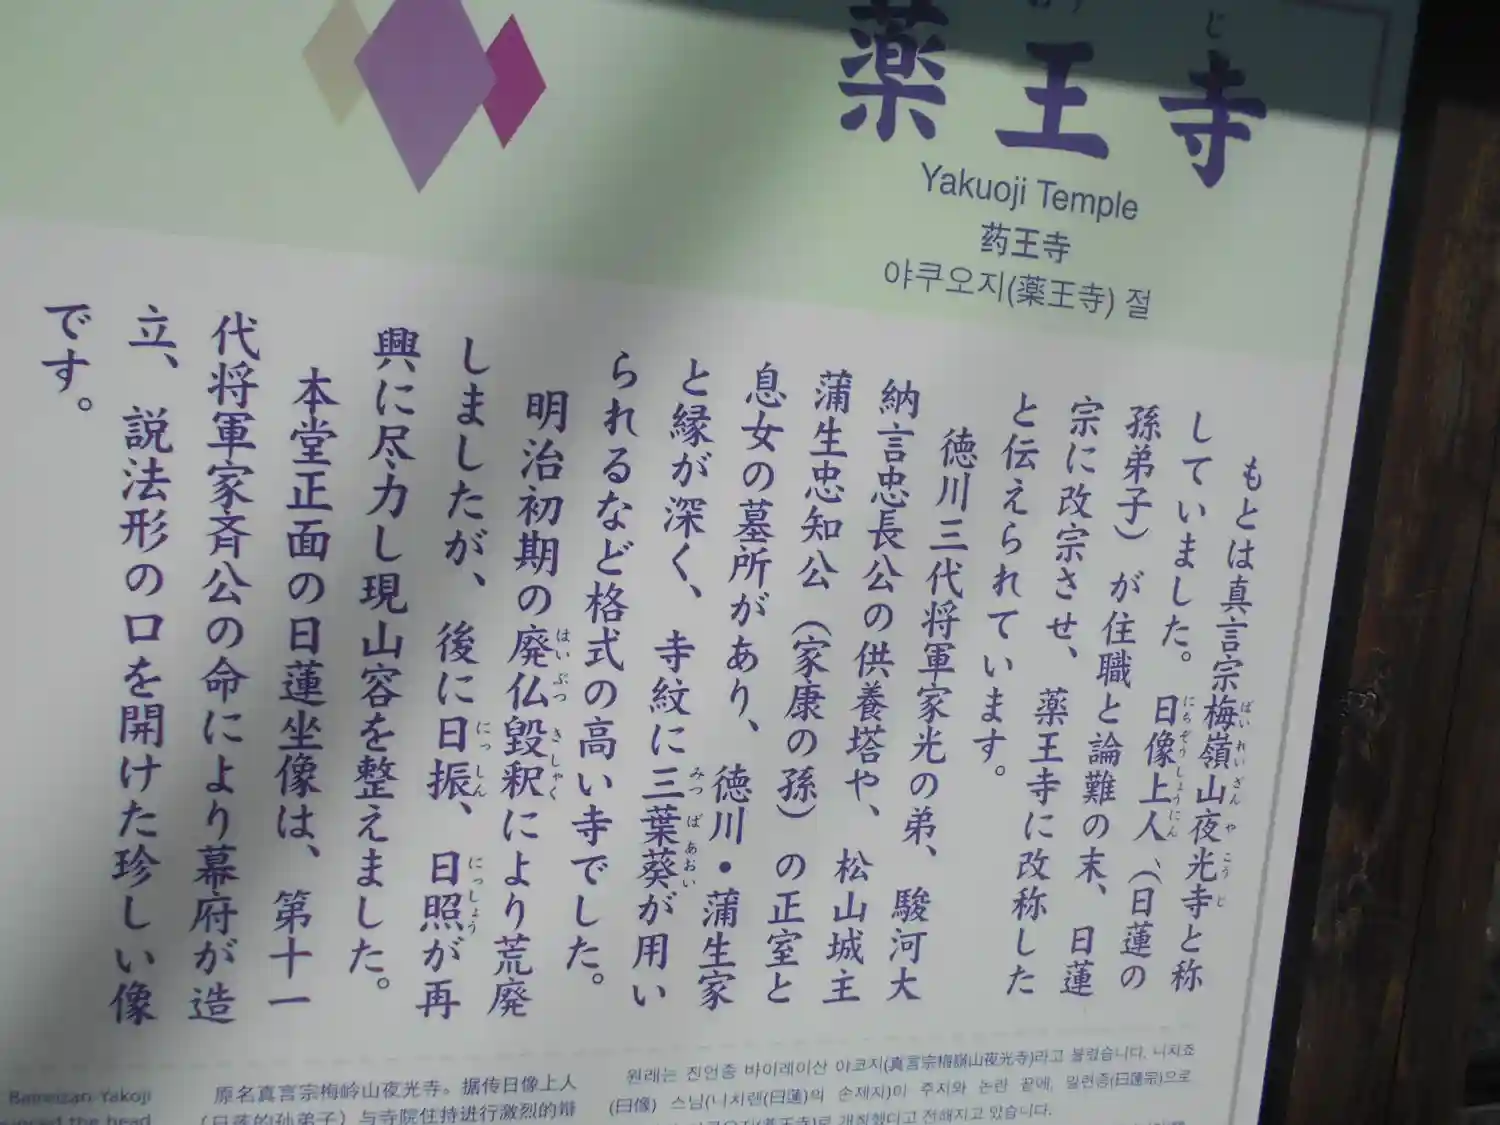 薬王寺
Yakuoji Temple
药王寺
야쿠오지(薬王寺) 절
もとは真言宗梅嶺山夜光寺と称
していました。日像上人(日蓮の
孫弟子)が住職と論難の末、日蓮
宗に改宗させ、薬王寺に改称した
と伝えられています。
徳川三代将軍家光の弟、駿河大
納言忠長公の供養塔や、松山城主
蒲生忠知公(家康の孫)の正室と
息女の墓所があり、徳川・蒲生家
と縁が深く、寺紋に三葉葵が用い
られるなど格式の高い寺でした。
明治初期の廃仏毀釈により荒廃
しましたが、後に日振、日照が再
興に尽力し現山容を整えました。
本堂正面の日蓮坐像は、第十一
代将軍家斉公の命により幕府が造
立、説法形の口を開けた珍しい像
です。
Baireizan Yakoji
原名真言宗梅岭山夜光寺。据传日像上人
(日莲的孙弟子)与寺院住持进行激烈的辩
원래는 진언종 바이레이산 야코지(真言宗梅嶺山夜光寺)라고 불렸습니다. 니치죠
(日像) 스님(니치렌(日蓮)의 손제자)이 주지와 논란 끝에, 일련종(日蓮宗)으로